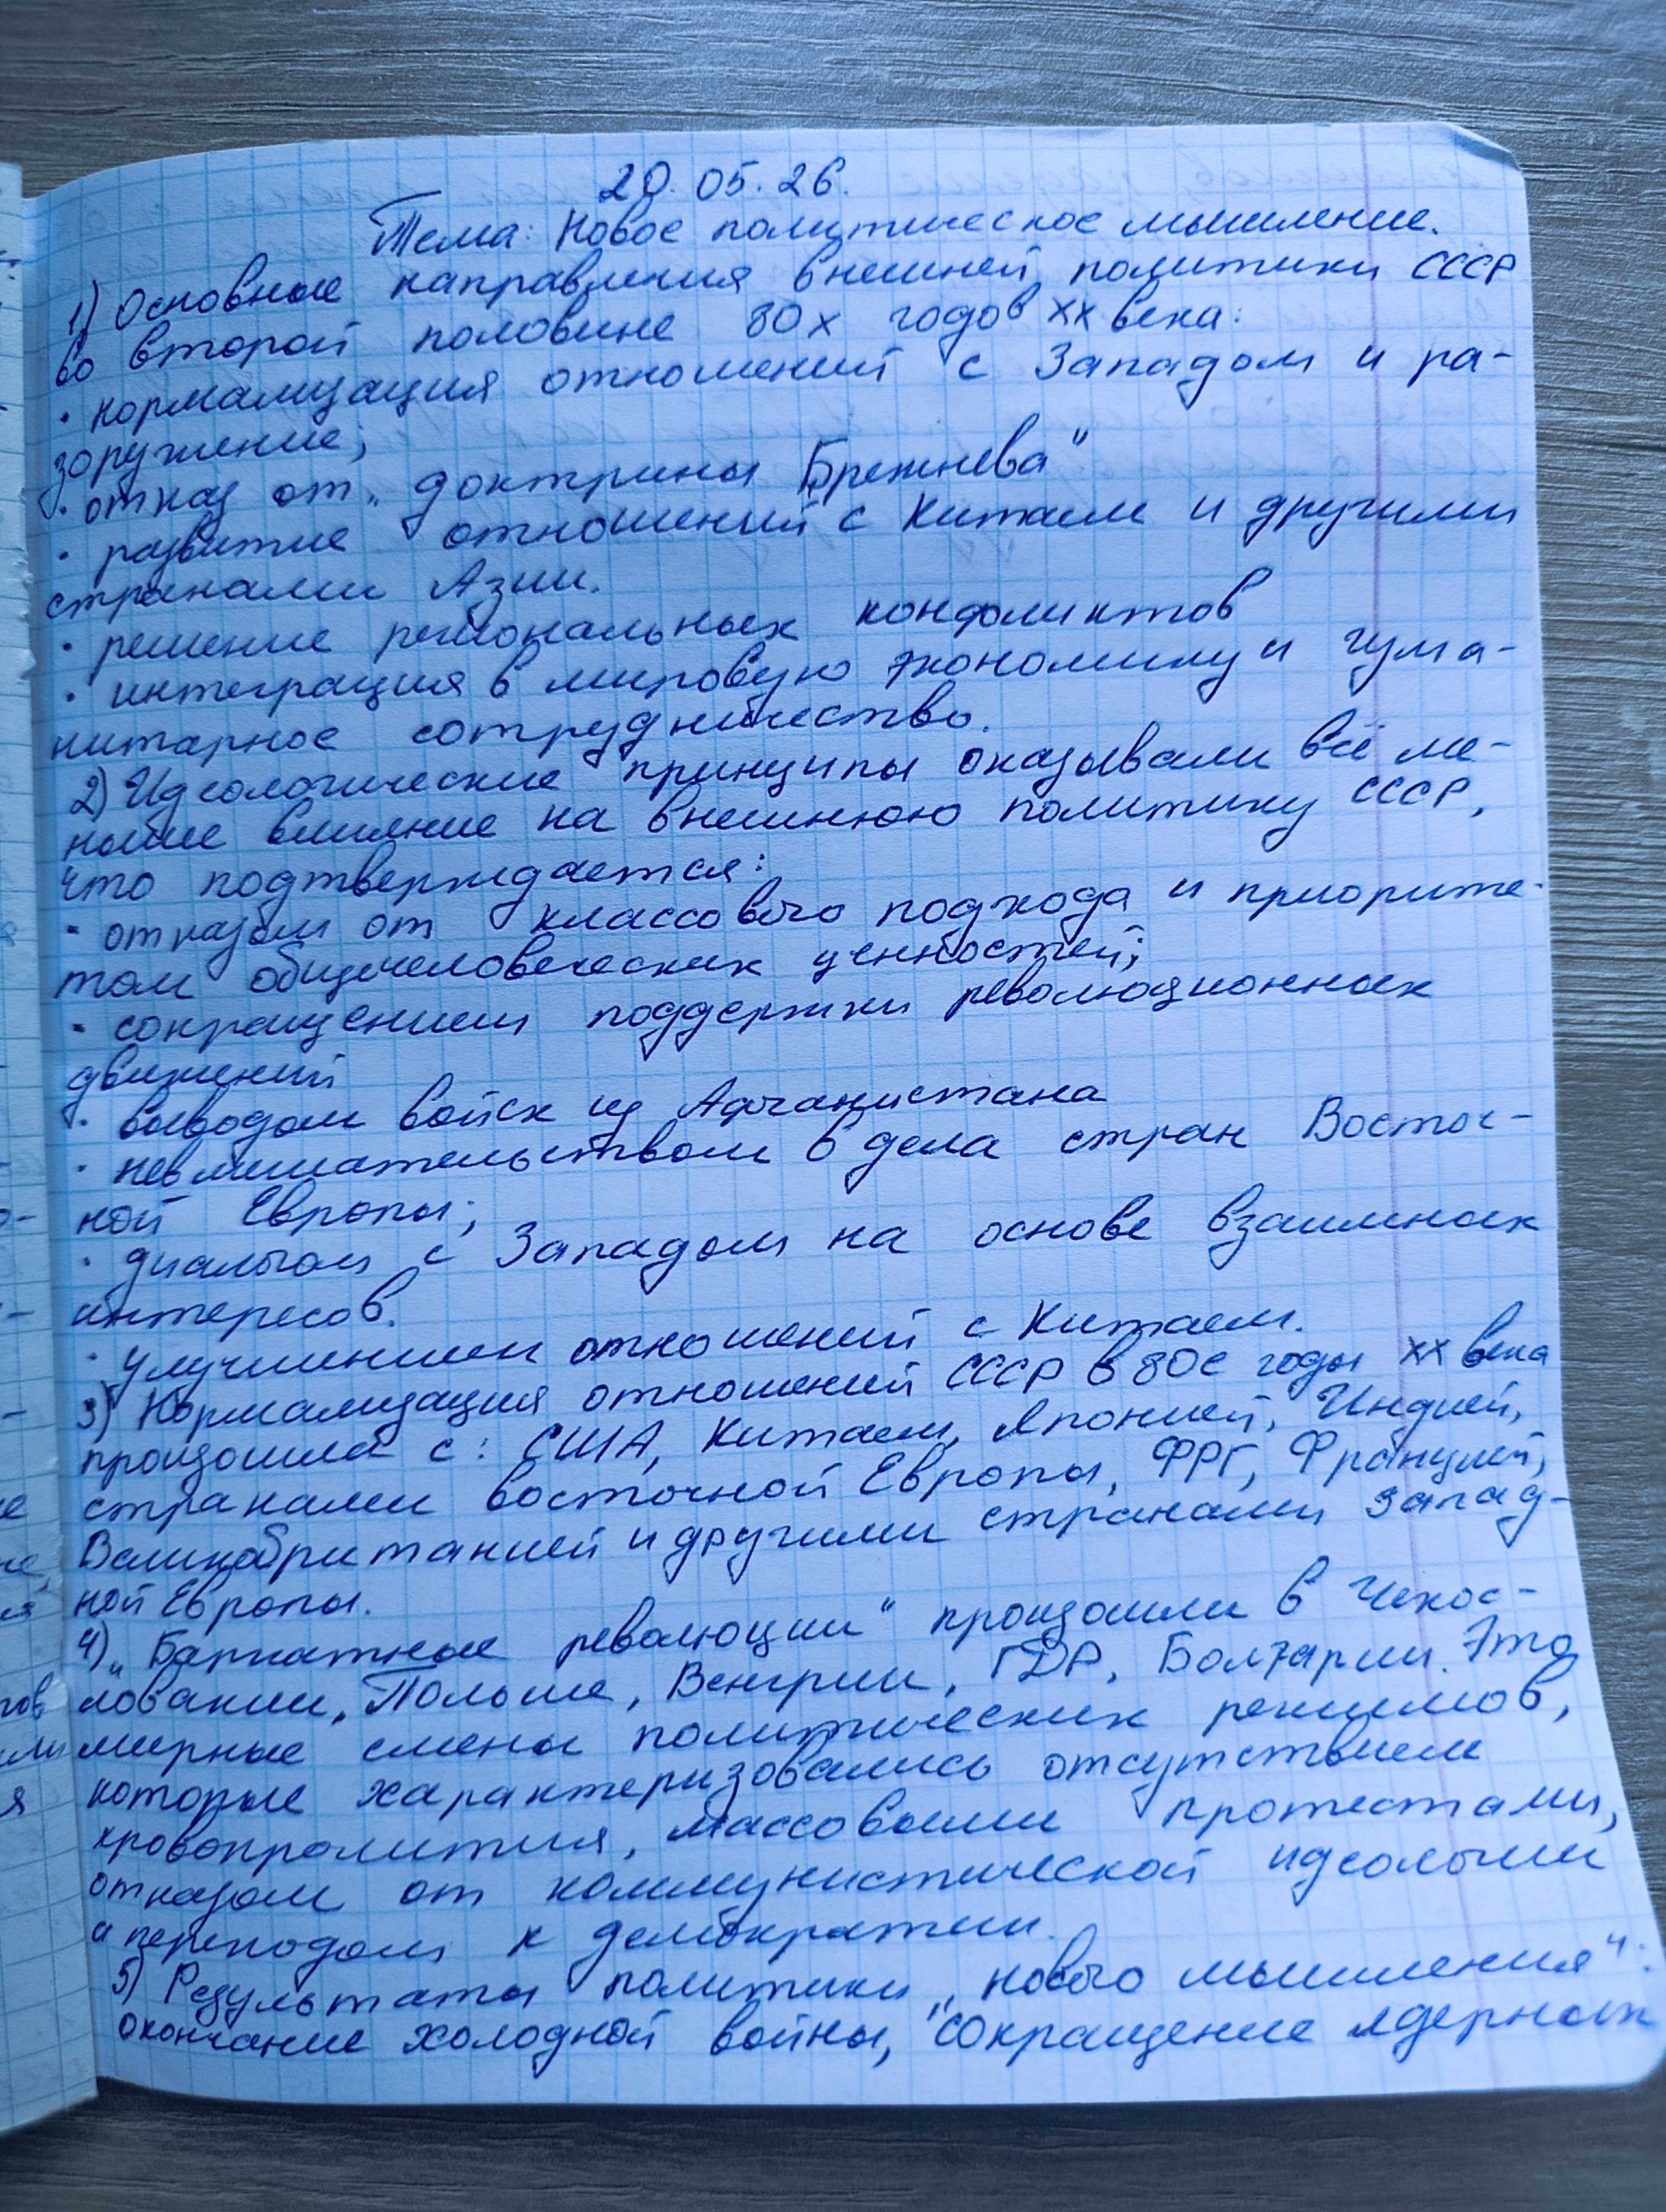 20.05.26.
Тема: Новое политическое мышление.
1) Основные направления внешней политики СССР
во второй половине 80х годов XX века:
· нормализация отношений с Западом и ра-
зоружение;
· отказ от „доктрины Брежнева"
· развитие отношений с Китаем и другими
странами Азии.
· решение региональных конфликтов
· интеграция в мировую экономику и гума-
нитарное сотрудничество.
2) Идеологические принципы оказывали всё ме-
ньшее влияние на внешнюю политику СССР,
что подтверждается:
· отказом от классового подхода и приорите-
том общечеловеческих ценностей;
· сокращением поддержки революционных
движений
· выводом войск из Афганистана
· невмешательством в дела стран Восточ-
ной Европы;
· диалогом с Западом на основе взаимных
интересов.
· улучшением отношений с Китаем.
3) Нормализация отношений СССР в 80е годы XX века
произошла с: США, Китаем, Японией, Индией,
странами восточной Европы, ФРГ, Францией,
Великобританией и другими странами запад-
ной Европы.
4) „Бархатные революции" произошли в Чехос-
ловакии, Польше, Венгрии, ГДР, Болгарии. Это
мирные смены политических режимов,
которые характеризовались отсутствием
кровопролития, массовыми протестами,
отказом от коммунистической идеологии
и переходом к демократии.
5) Результаты политики „нового мышления":
окончание холодной войны, сокращение ядерных